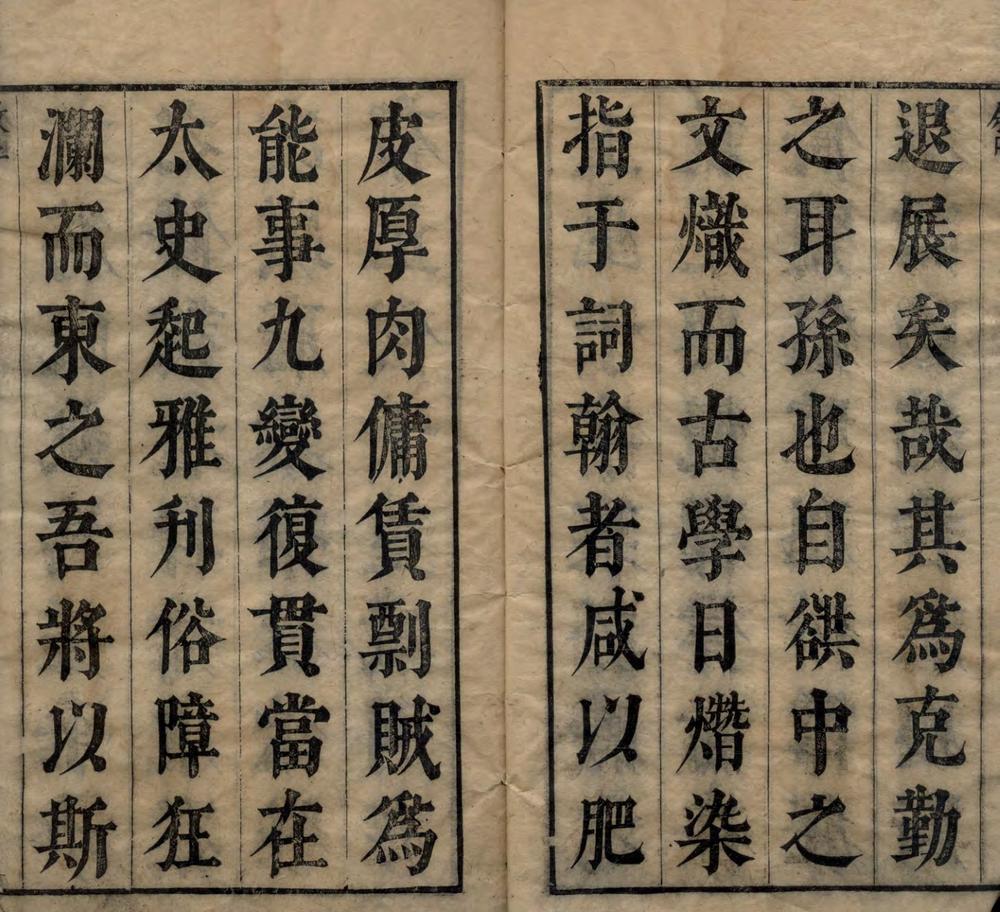 退展矣哉其為克勤
之耳孫也自鍈中之
文熾而古學日熸染
指于詞翰者咸以肥
皮厚肉傭賃剽賊為
能事九變復貫當在
太史起雅刋俗障狂
瀾而東之吾將以斯